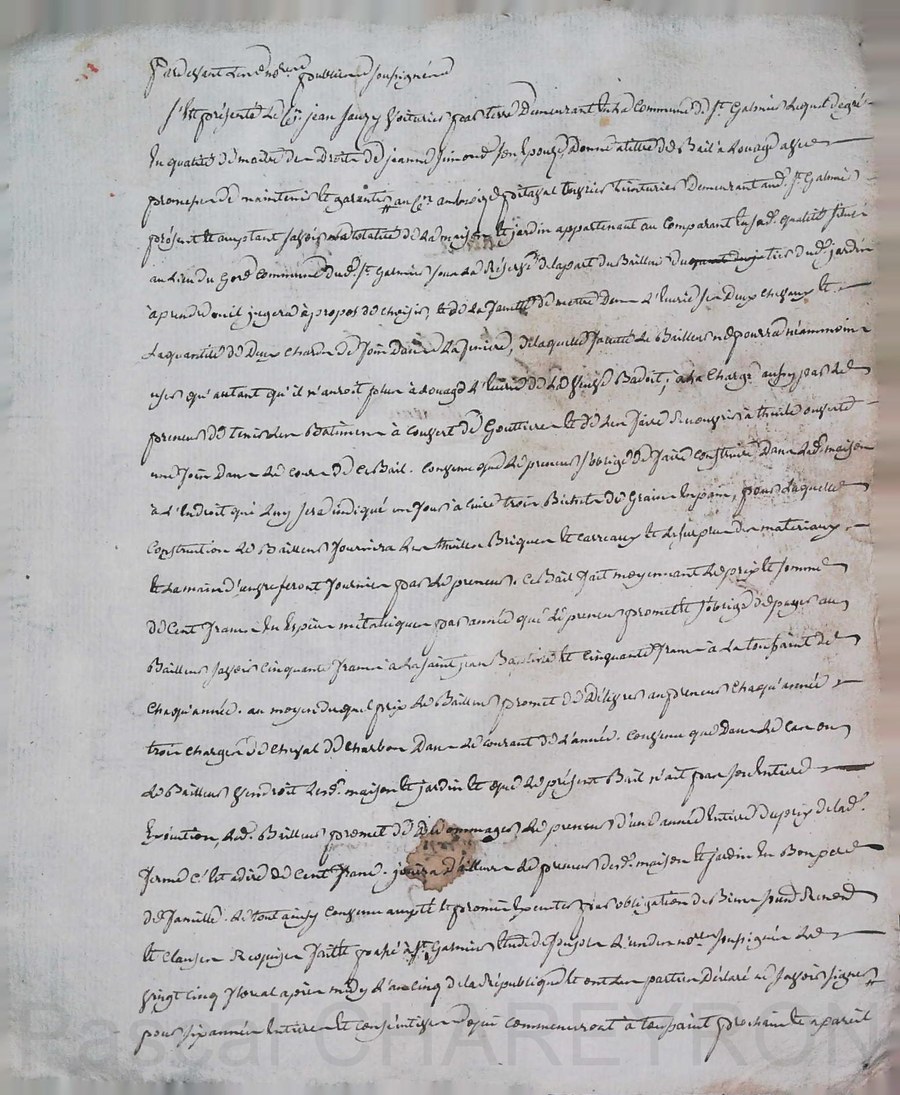 Pardevant les no.res publics soussignés
S'est présenté le C.en jean Jauzy Voiturier par terre Demeurant en la Commune de S.t Galmier lequel de gré
En qualité de maitre des Droits de jeanne Simond son Epouse, Donne a titre de Bail a Louage avec
promesse de maintenir et garantir au C.en ambroize pitaval teinturier Demeurant aud. S.t Galmier
présent et acceptant savoir la totalité de la maison et jardin appartenant au Comparant en sad. qualité situé
au lieu du Commune dud. S.t Galmier sous la Réserve de la part du Bailleur du tiers dud. jardin
a prendre ou il jugera à propos de choisir, et de la faculté de mettre Dans l'Ecurie ses Deux chevaux et
la quantité de Deux chards de foin Dans la feniere, de laquelle faculté le Bailleur ne pourra néanmoins
user qu'autant qu'il n'auroit plus à Louage l'Ecurie de la Veuve Badoit; à la Charge aussy par le
preneur de tenir les Batimens à couvert de Gouttieres et de les faire Recouvrir à thuile ouverte
une fois Dans le cours de ce Bail. Convenu que le preneur s'oblige de faire construire Dans lad. maison
à l'Endroit qui luy sera indiqué un four à cuire trois Bichets de Grains En pain, pour laquelle
Construction le Bailleur fournira les thuilles Briques et carreaux et le surplus des materiaux
et la main d'œuvre seront fournies par le preneur. Ce Bail fait moyennant le prix et somme
de Cent francs En Espèces métalliques par année que le preneur promet et s'oblige de payer au
Bailleur savoir cinquante francs a la saint jean Baptiste et cinquante francs à la toussaint de
Chaqu'année. au moyen duquel prix le Bailleur promet de Délivrer au preneur Chaqu'année
trois charges de cheval de Charbon Dans le courant de l'année. Convenu que Dans le cas ou
le Bailleur vendroit lesd. maison et jardin et que le présent Bail n'ait pas son Entiere
Exécution, led. Bailleur promet de dédommager le preneur d'une année Entiere du prix de lad.
ferme c'est a dire de Cent francs. jouira d'ailleurs le preneur desd. maison et jardin En Bon pere
de famille. Le tout ainsy convenu accepté et promis Exécuter par obligation de Biens soumd. Renond.
et Clauses Requises fait et passé à S.t Galmier Etude de l'un des no.res soussignés le
Vingt Cinq floreal après midy l'an cinq de la République et ont les parties Déclaré ne savoir signer
pour six années Entieres et consécutives qui commenceront à toussaint prochain et a pareil
Pascal CHAREYRON